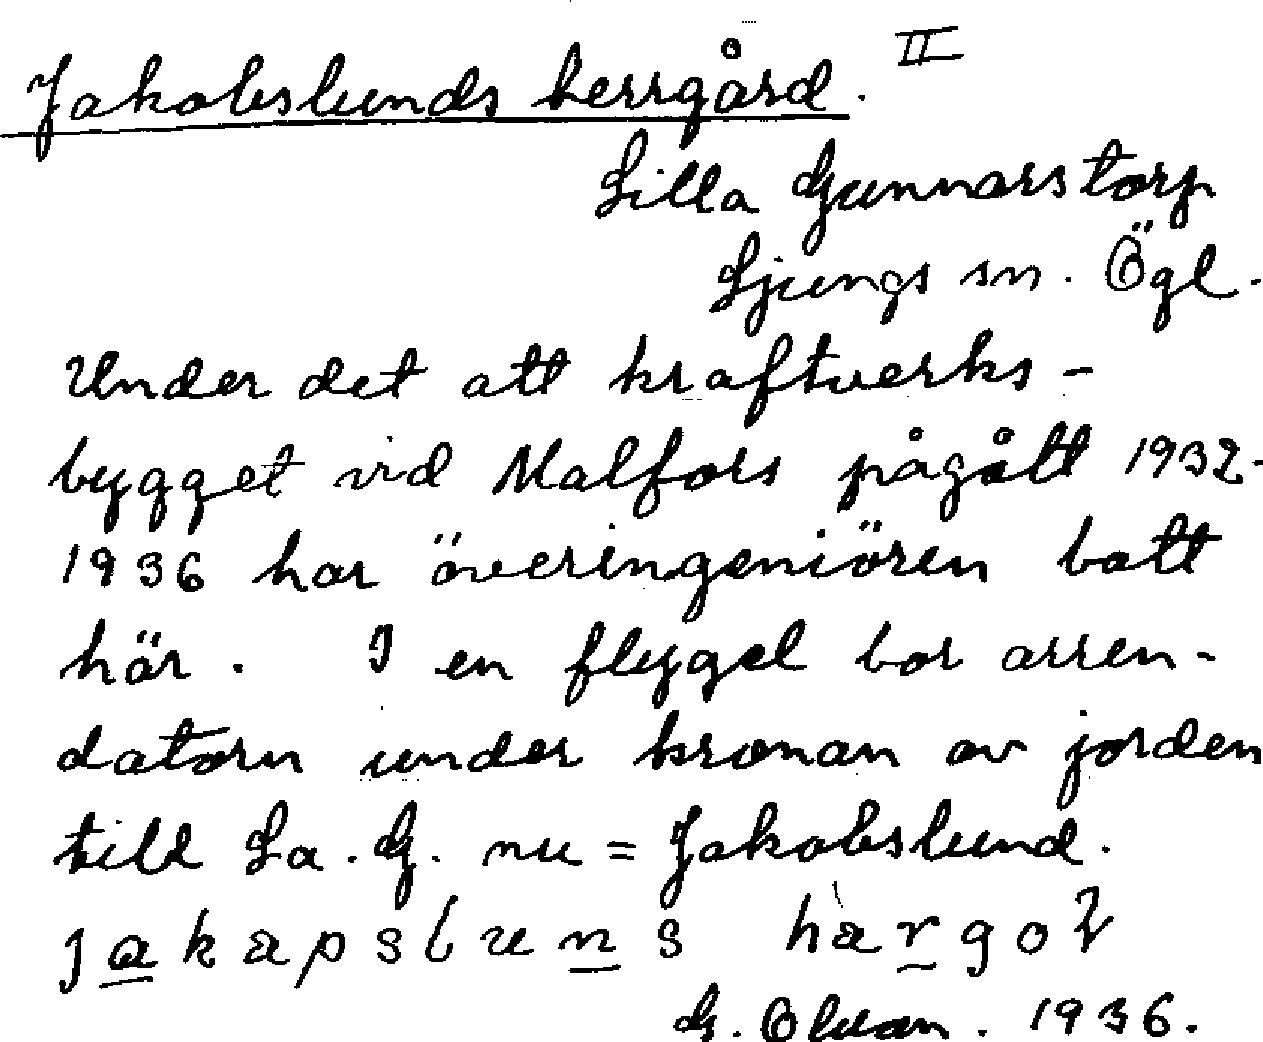 Jakobslunds herrgård. II
Lilla Gunnarstorp
Ljungs sn. Ögl.
Under det att kraftverks-
bygget vid Malfors pågått 1932-
1936 har överingeniören bott
här. I en flygel bor arren-
datorn under kronan av jorden
till La. G. nu = Jakobslund.
G. 1936.